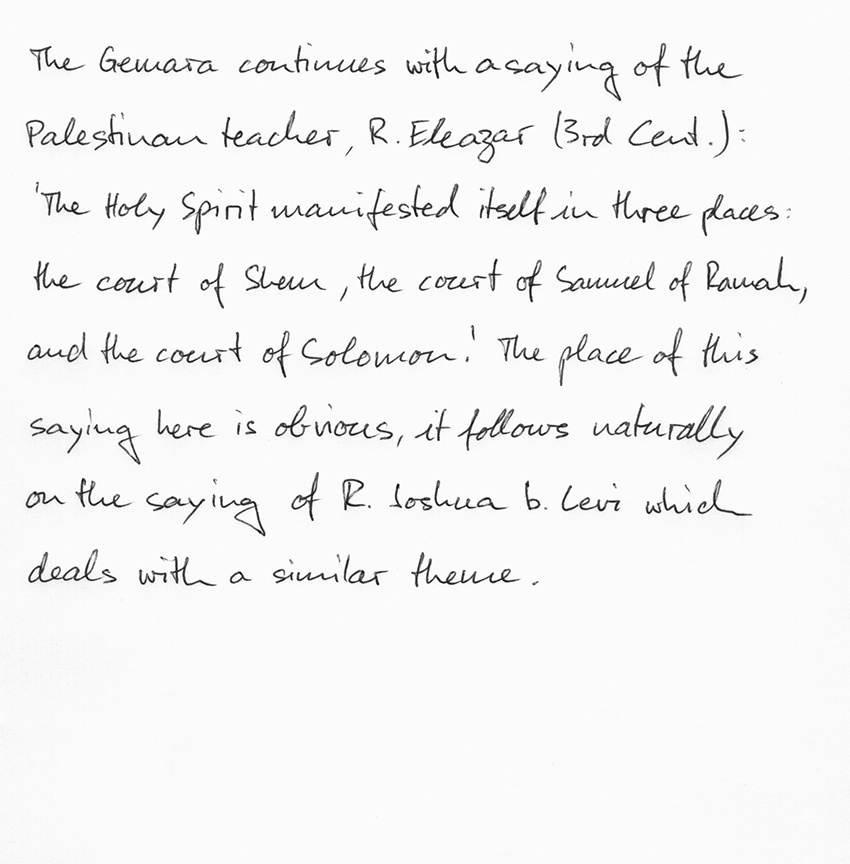 The Gemara continues with a saying of the
Palestinian teacher, R. Eleazar (3rd Cent.):
'The Holy Spirit manifested itself in three places:
the court of Shem, the court of Samuel of Ramah,
and the court of Solomon.' The place of this
saying here is obvious, it follows naturally
on the saying of R. Joshua b. Levi which
deals with a similar theme.